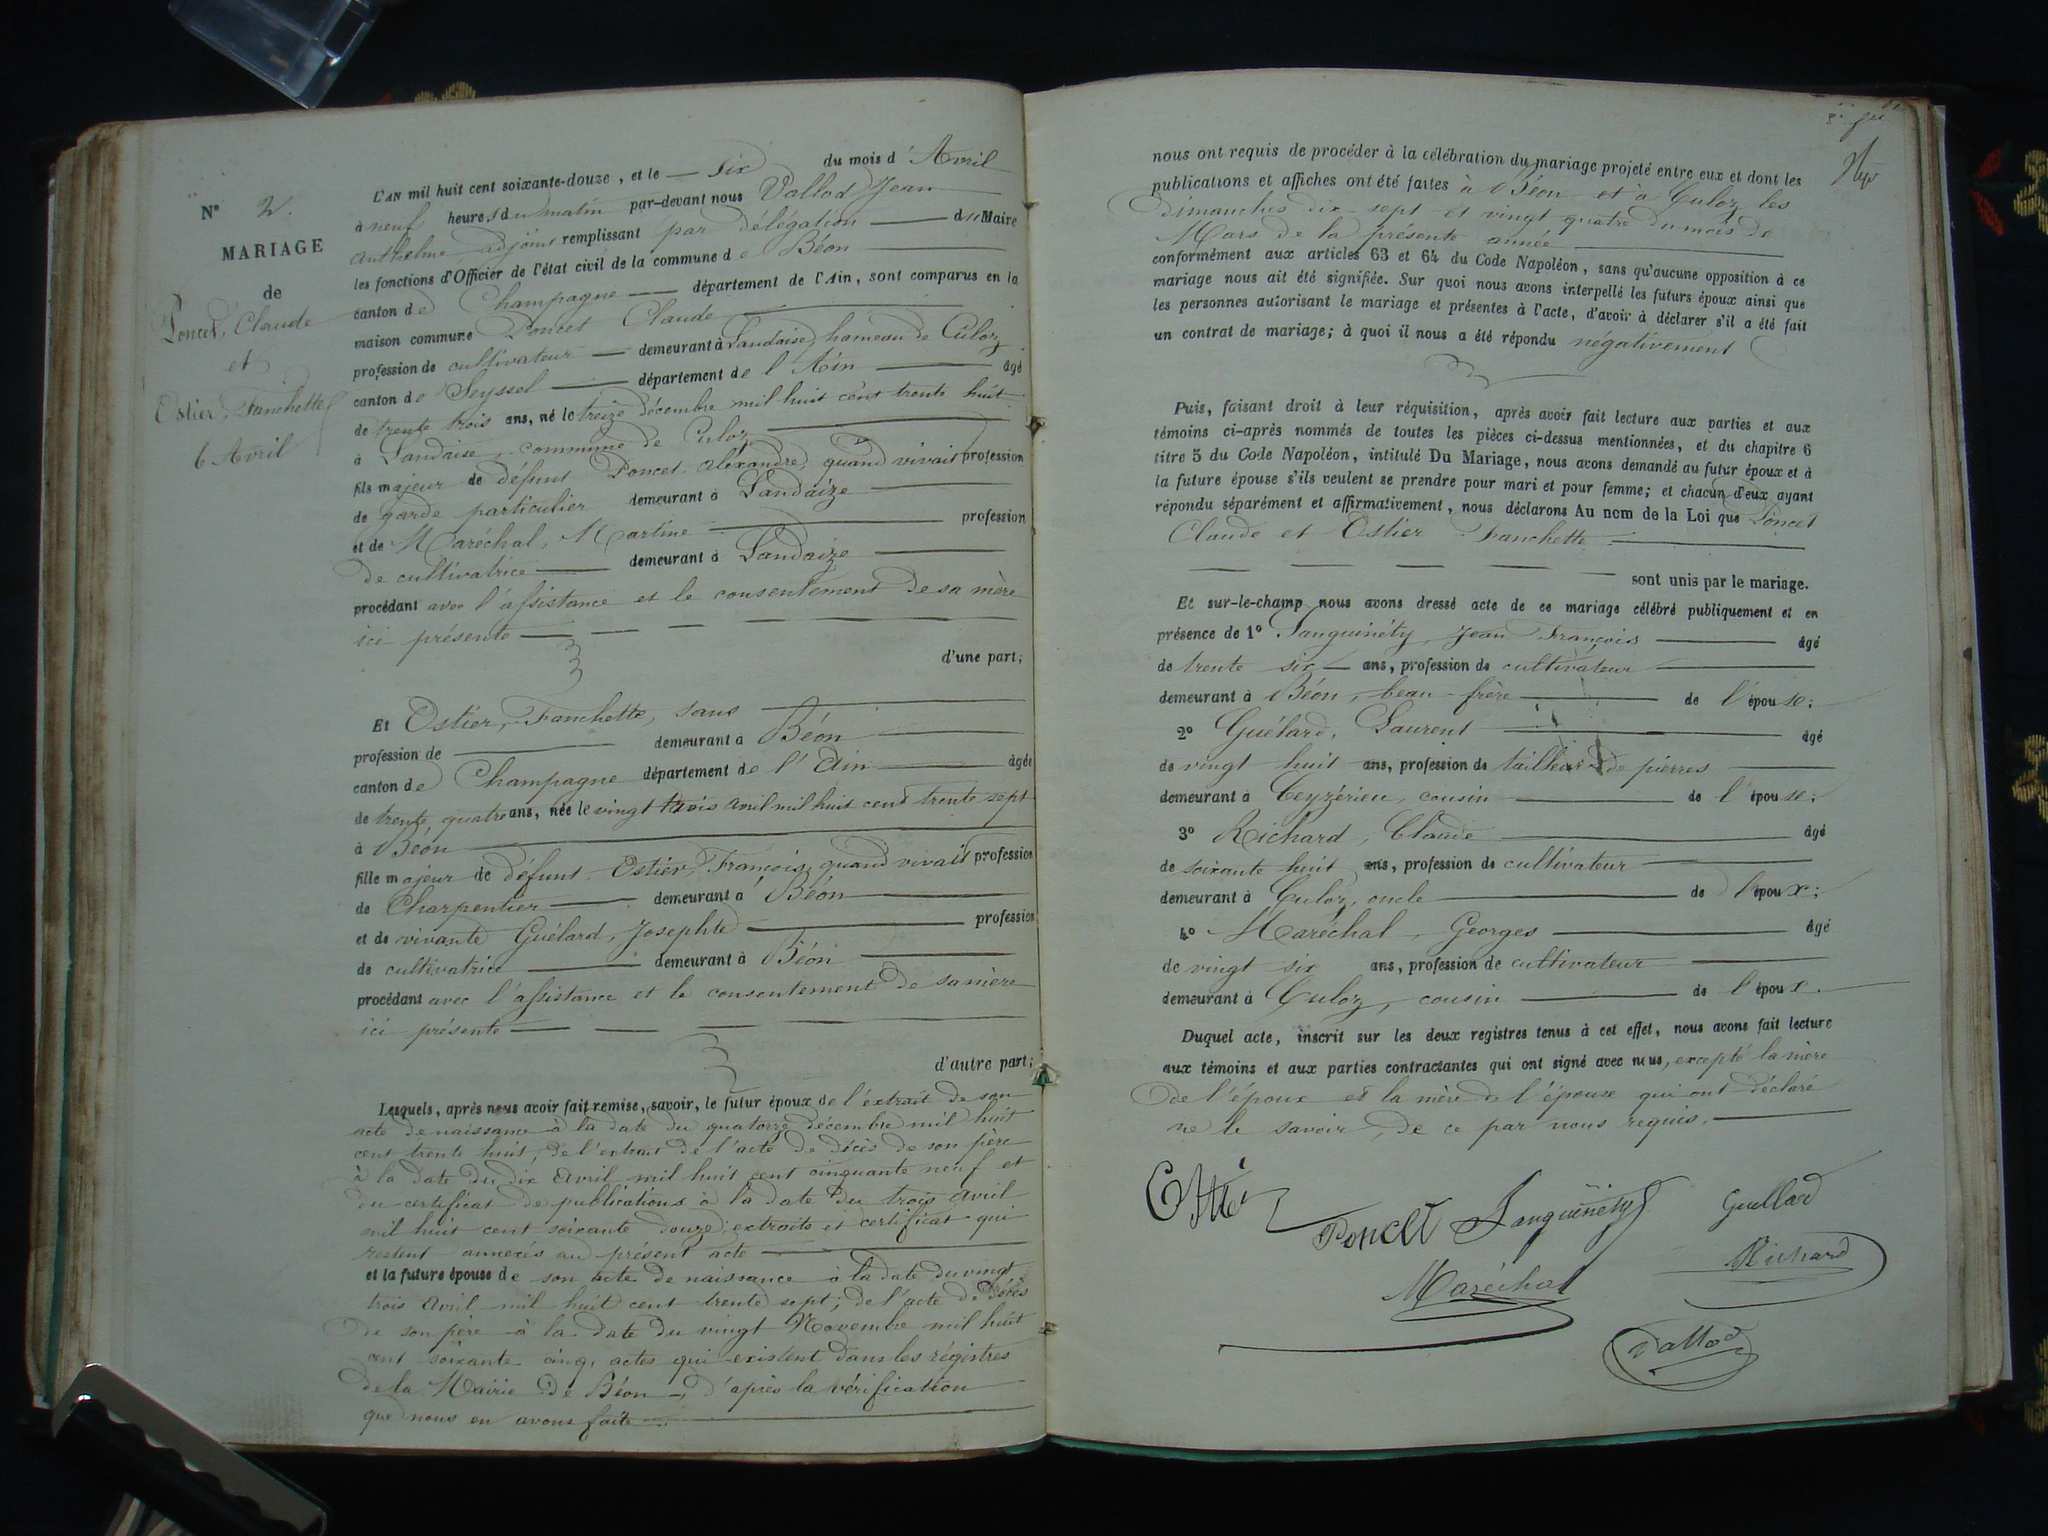 N° 2.
MARIAGE
de
Poncet, Claude
et
Ostier, Fanchette
6 Avril
L'AN mil huit cent soixante-douze, et le six du mois d'Avril
à neuf heures du matin par-devant nous Vallod Jean
anthelme adjoint remplissant par délégation du Maire
les fonctions d'Officier de l'état civil de la commune de Béon
canton de Champagne département de l'Ain, sont comparus en la
maison commune Poncet Claude
profession de cultivateur demeurant à Landaise, hameau de Culoz
canton de Seyssel département de l'Ain âgé
de trente trois ans, né le treize décembre mil huit cent trente huit
à Landaise, commune de Culoz
fils majeur de défunt Poncet Alexandre, quand vivait profession
de garde particulier demeurant à Landaize
et de Maréchal, Martine profession
de cultivatrice demeurant à Landaize
procédant avec l'assistance et le consentement de sa mère
ici présente
d'une part;
Et Ostier, Fanchette, sans
profession de demeurant à Béon
canton de Champagne département de l'Ain âgée
de trente quatre ans, née le vingt trois avril mil huit cent trente sept
à Béon
fille majeur de défunt Ostier, François, quand vivait profession
de Charpentier demeurant à Béon
et de vivante Guélard, Josephte profession
de cultivatrice demeurant à Béon
procédant avec l'assistance et le consentement de sa mère
ici présente
d'autre part;
Lesquels, après nous avoir fait remise, savoir, le futur époux de l'extrait de son
acte de naissance à la date du quatorze décembre mil huit
cent trente huit, de l'extrait de l'acte de décès de son père
à la date du dix avril mil huit cent cinquante neuf et
du certificat de publications à la date du trois avril
mil huit cent soixante douze; extraits et certificat qui
restent annexés au présent acte
et la future épouse de son acte de naissance à la date du vingt
trois avril mil huit cent trente sept; de l'acte de décès
de son père à la date du vingt Novembre mil huit
cent soixante cinq, actes qui existent dans les régistres
de la Mairie de Béon, d'après la vérification
que nous en avons faite
nous ont requis de procéder à la célébration du mariage projeté entre eux et dont les
publications et affiches ont été faites à Béon et à Culoz les
dimanches dix-sept et vingt quatre du mois de
Mars de la présente année
conformément aux articles 63 et 64 du Code Napoléon, sans qu'aucune opposition à ce
mariage nous ait été signifiée. Sur quoi nous avons interpellé les futurs époux ainsi que
les personnes autorisant le mariage et présentes à l'acte, d'avoir à déclarer s'il a été fait
un contrat de mariage; à quoi il nous a été répondu négativement
Puis, faisant droit à leur réquisition, après avoir fait lecture aux parties et aux
témoins ci-après nommés de toutes les pièces ci-dessus mentionnées, et du chapitre 6
titre 5 du Code Napoléon, intitulé Du Mariage, nous avons demandé au futur époux et à
la future épouse s'ils veulent se prendre pour mari et pour femme; et chacun d'eux ayant
répondu séparément et affirmativement, nous déclarons Au nom de la Loi que Poncet
Claude et Ostier Fanchette
sont unis par le mariage.
Et sur-le-champ nous avons dressé acte de ce mariage célébré publiquement et en
présence de 1° Sanguinéty, Jean François âgé
de trente six ans, profession de cultivateur
demeurant à Béon, beau-frère de l'épouse;
2° Guélard, Laurent âgé
de vingt huit ans, profession de tailleur de pierres
demeurant à Ceyzérieu, cousin de l'épouse;
3° Richard, Claude âgé
de soixante huit ans, profession de cultivateur
demeurant à Culoz, oncle de l'époux;
4° Maréchal, Georges âgé
de vingt six ans, profession de cultivateur
demeurant à Culoz, cousin de l'époux.
Duquel acte, inscrit sur les deux registres tenus à cet effet, nous avons fait lecture
aux témoins et aux parties contractantes qui ont signé avec nous, excepté la mère
de l'époux et la mère de l'épouse qui ont déclaré
ne le savoir, de ce par nous requis.
Ostier Poncet Sanguinéty Guellard
Maréchal Richard
Vallod